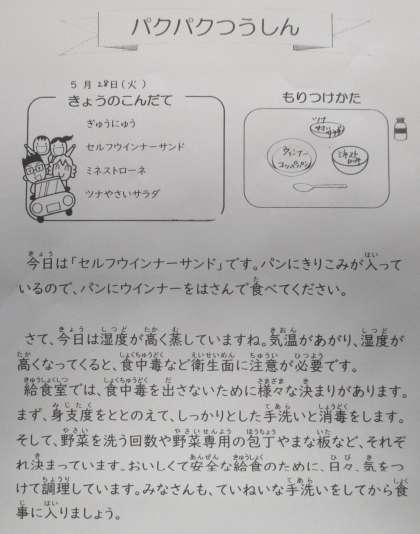 パクパクつうしん
5月28日(火)
きょうのこんだて
ぎゅうにゅう
セルフウインナーサンド
ミネストローネ
ツナやさいサラダ
もりつけかた
ツナ
やさい
サラダ
ウィンナー
コッペパン
ミネスト
ローネ
今日は「セルフウインナーサンド」です。パンにきりこみが入っ
ているので、パンにウインナーをはさんで食べてください。
さて、今日は湿度が高く蒸していますね。気温があがり、湿度が
高くなってくると、食中毒など衛生面に注意が必要です。
給食室では、食中毒を出さないために様々な決まりがあります。
まず、身支度をととのえて、しっかりとした手洗いと消毒をします。
そして、野菜を洗う回数や野菜専用の包丁やまな板など、それぞ
れ決まっています。おいしくて安全な給食のために、日々、気をつ
けて調理しています。みなさんも、ていねいな手洗いをしてから食
事に入りましょう。